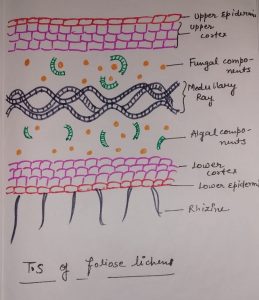 Upper Epidermi
Upper
cortex
Fungal compo-
nents
Medullary
Ray
Algal compo-
nents
Lower
cortex
Lower epidermi
Rhizine
T.S of foliose lichens